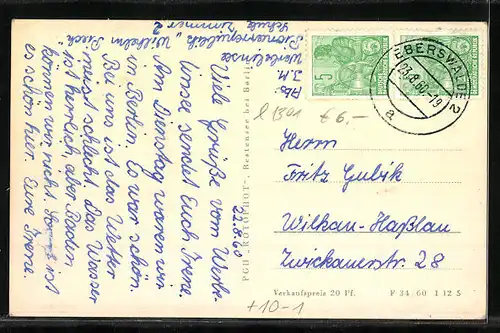 Abs.
J. M.
Werbellinsee
Pionierrepublik „Wilhelm Pieck"
Schule
Zimmer 2
22.8.60
Viele Grüße vom Werbel-
linsee sendet Euch Irene.
Am Dienstag waren wir
in Berlin. Es war schön.
Bei uns ist das Wetter
meist schlecht. Das Wasser
ist herrlich, aber Baden
können wir nicht. Sonst ist
es schön hier. Eure Irene.
PGH „ROTOPHOT", Bestensee bei Berlin
5
EBERSWALDE 2
23.8.60-19
a
l 1301
€ 6,–
Herrn
Fritz Gubik
Wilkau-Haßlau
Zwickauerstr 28
Verkaufspreis 20 Pf.
F 34/60 1 12 5
+10-1